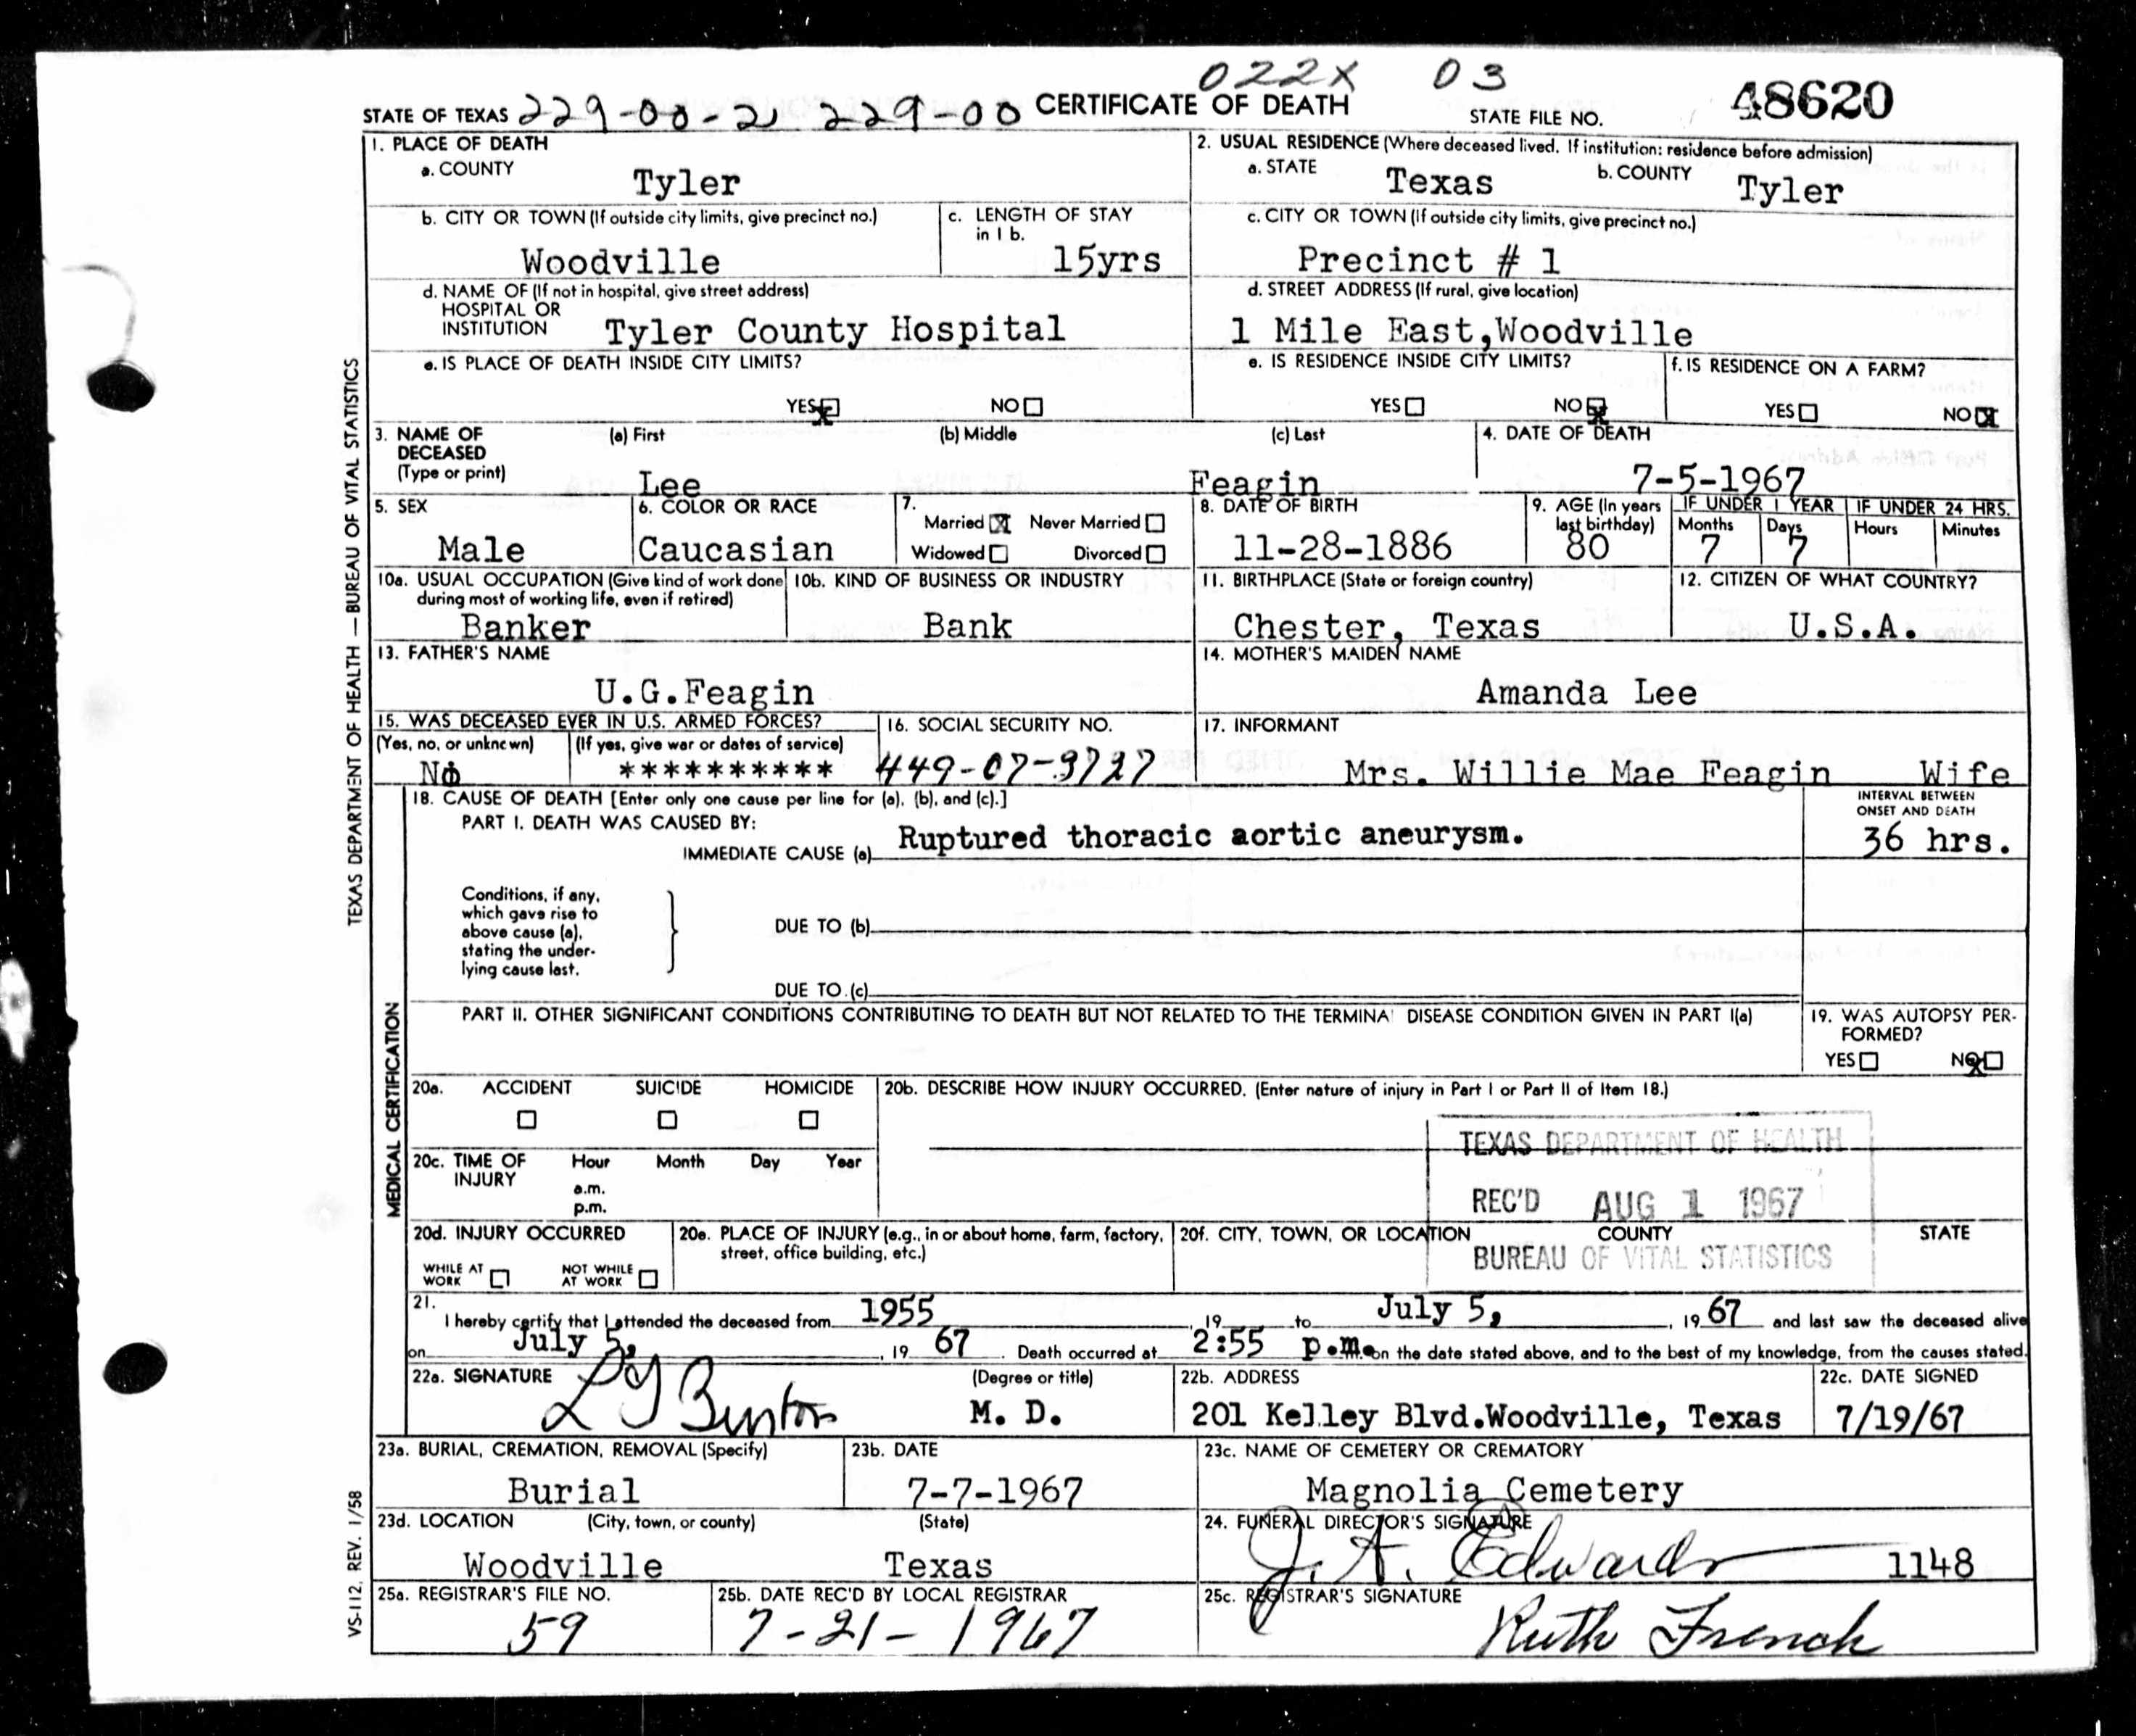 022X 03
STATE OF TEXAS 229-00-2 229-00 CERTIFICATE OF DEATH STATE FILE NO. 48620
1. PLACE OF DEATH
a. COUNTY Tyler
2. USUAL RESIDENCE (Where deceased lived. If institution: residence before admission)
a. STATE Texas b. COUNTY Tyler
b. CITY OR TOWN (If outside city limits, give precinct no.) Woodville
c. LENGTH OF STAY in 1 b. 15yrs
c. CITY OR TOWN (If outside city limits, give precinct no.) Precinct # 1
d. NAME OF (If not in hospital, give street address)
HOSPITAL OR
INSTITUTION Tyler County Hospital
d. STREET ADDRESS (If rural, give location)
1 Mile East,Woodville
e. IS PLACE OF DEATH INSIDE CITY LIMITS?
YES NO
e. IS RESIDENCE INSIDE CITY LIMITS?
YES NO
f. IS RESIDENCE ON A FARM?
YES NO
3. NAME OF DECEASED (Type or print)
(a) First (b) Middle (c) Last
Lee Feagin
4. DATE OF DEATH
7-5-1967
5. SEX
Male
6. COLOR OR RACE
Caucasian
7.
Married Never Married
Widowed Divorced
8. DATE OF BIRTH
11-28-1886
9. AGE (In years last birthday)
80
IF UNDER 1 YEAR IF UNDER 24 HRS.
Months Days Hours Minutes
7 7
10a. USUAL OCCUPATION (Give kind of work done during most of working life, even if retired)
Banker
10b. KIND OF BUSINESS OR INDUSTRY
Bank
11. BIRTHPLACE (State or foreign country)
Chester, Texas
12. CITIZEN OF WHAT COUNTRY?
U.S.A.
13. FATHER'S NAME
U.G.Feagin
14. MOTHER'S MAIDEN NAME
Amanda Lee
15. WAS DECEASED EVER IN U.S. ARMED FORCES?
(Yes, no, or unknown) (If yes, give war or dates of service)
No **********
16. SOCIAL SECURITY NO.
449-07-9727
17. INFORMANT
Mrs. Willie Mae Feagin Wife
18. CAUSE OF DEATH [Enter only one cause per line for (a), (b), and (c).]
PART I. DEATH WAS CAUSED BY:
IMMEDIATE CAUSE (a) Ruptured thoracic aortic aneurysm.
INTERVAL BETWEEN
ONSET AND DEATH
36 hrs.
Conditions, if any,
which gave rise to
above cause (a),
stating the under-
lying cause last.
DUE TO (b)
DUE TO (c)
PART II. OTHER SIGNIFICANT CONDITIONS CONTRIBUTING TO DEATH BUT NOT RELATED TO THE TERMINA DISEASE CONDITION GIVEN IN PART I(a)
19. WAS AUTOPSY PER-
FORMED?
YES NO
20a. ACCIDENT SUICIDE HOMICIDE
20b. DESCRIBE HOW INJURY OCCURRED. (Enter nature of injury in Part I or Part II of Item 18.)
TEXAS DEPARTMENT OF HEALTH
REC'D AUG 1 1967
BUREAU OF VITAL STATISTICS
20c. TIME OF INJURY Hour Month Day Year
a.m.
p.m.
20d. INJURY OCCURRED
WHILE AT WORK NOT WHILE AT WORK
20e. PLACE OF INJURY (e.g., in or about home, farm, factory, street, office building, etc.)
20f. CITY, TOWN, OR LOCATION COUNTY STATE
21.
I hereby certify that I attended the deceased from 1955, 19 to July 5, , 19 67 and last saw the deceased alive
on July 5, , 19 67 . Death occurred at 2:55 p.m. m. on the date stated above, and to the best of my knowledge, from the causes stated.
22a. SIGNATURE (Degree or title)
M. D.
22b. ADDRESS
201 Kelley Blvd.Woodville, Texas
22c. DATE SIGNED
7/19/67
23a. BURIAL, CREMATION, REMOVAL (Specify)
Burial
23b. DATE
7-7-1967
23c. NAME OF CEMETERY OR CREMATORY
Magnolia Cemetery
23d. LOCATION (City, town, or county) (State)
Woodville Texas
24. FUNERAL DIRECTOR'S SIGNATURE
J. A. Edwards 1148
25a. REGISTRAR'S FILE NO.
59
25b. DATE REC'D BY LOCAL REGISTRAR
7-21-1967
25c. REGISTRAR'S SIGNATURE
Ruth French
TEXAS DEPARTMENT OF HEALTH — BUREAU OF VITAL STATISTICS
MEDICAL CERTIFICATION
VS-112, REV. 1/58